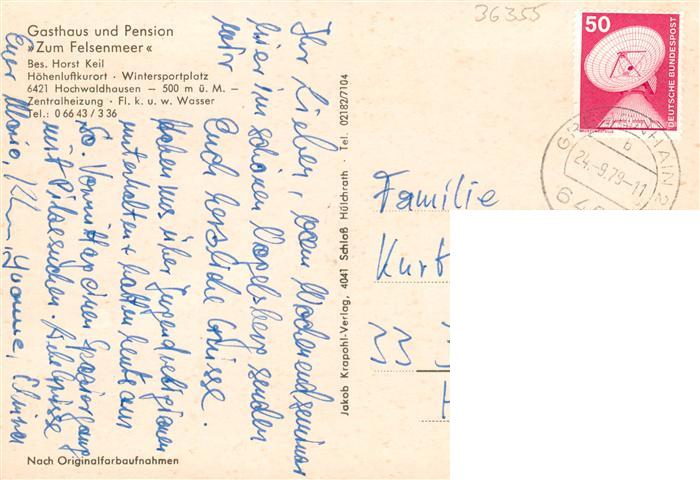 36355
Gasthaus und Pension
»Zum Felsenmeer«
Bes. Horst Keil
Höhenluftkurort · Wintersportplatz
6421 Hochwaldhausen – 500 m ü. M. –
Zentralheizung · Fl. k. u. w. Wasser
Tel.: 0 66 43 / 3 36
Ihr Lieben, vom Wochenendseminar
hier im schönen Vogelsberg senden
wir
Euch herzliche Grüsse.
Haben uns über Jugendreligionen
unterhalten + hatten heute am
So. Vormittag einen Spaziergang
mit Pilzesuchen. Liebe Grüsse
Eure Maria, Yvonne,
Nach Originalfarbaufnahmen
Jakob Krapohl-Verlag, 4041 Schloß Hülchrath · Tel. 02182/7104
50
DEUTSCHE BUNDESPOST
HAIN 2
b
24.-9.79-11
64
Familie
Kurt